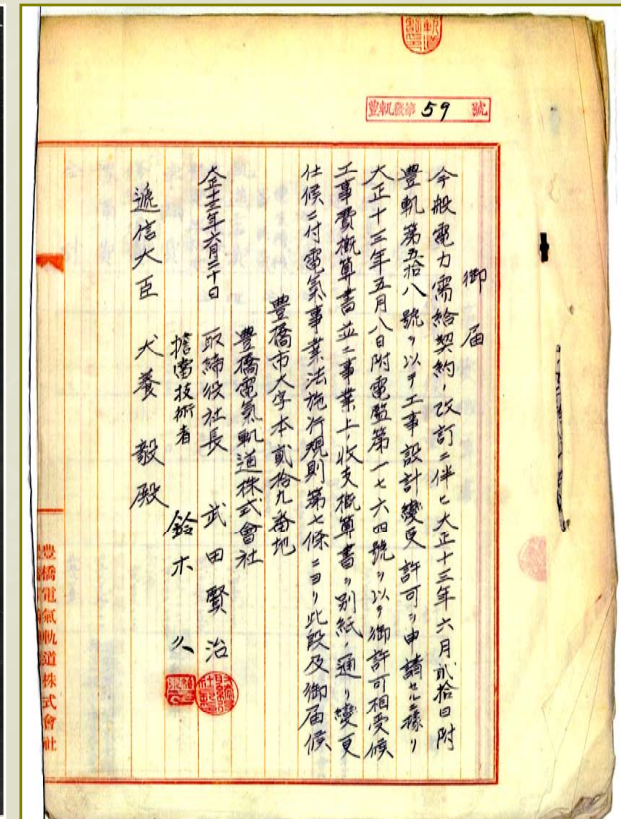 豊軌發第59號
御届
今般電力需給契約ノ改訂ニ伴ヒ大正十三年六月貳拾日附
豊軌第五拾八號ヲ以テ工事設計變更許可ヲ申請セルニ移リ
大正十三年五月八日附電監第一七六四號ヲ以テ御許可相受候
工事費概算書並ニ事業上ノ收支概算書ヲ別紙ノ通リ變更
仕候ニ付電氣事業法施行規則第七條ニヨリ此段及御届候
豊橋市大字本貳拾九番地
豊橋電氣軌道株式會社
大正十三年六月二十日 取締役社長 武田賢治
擔當技術者 鈴木久
遞信大臣 犬養毅殿
豊橋電氣軌道株式會社